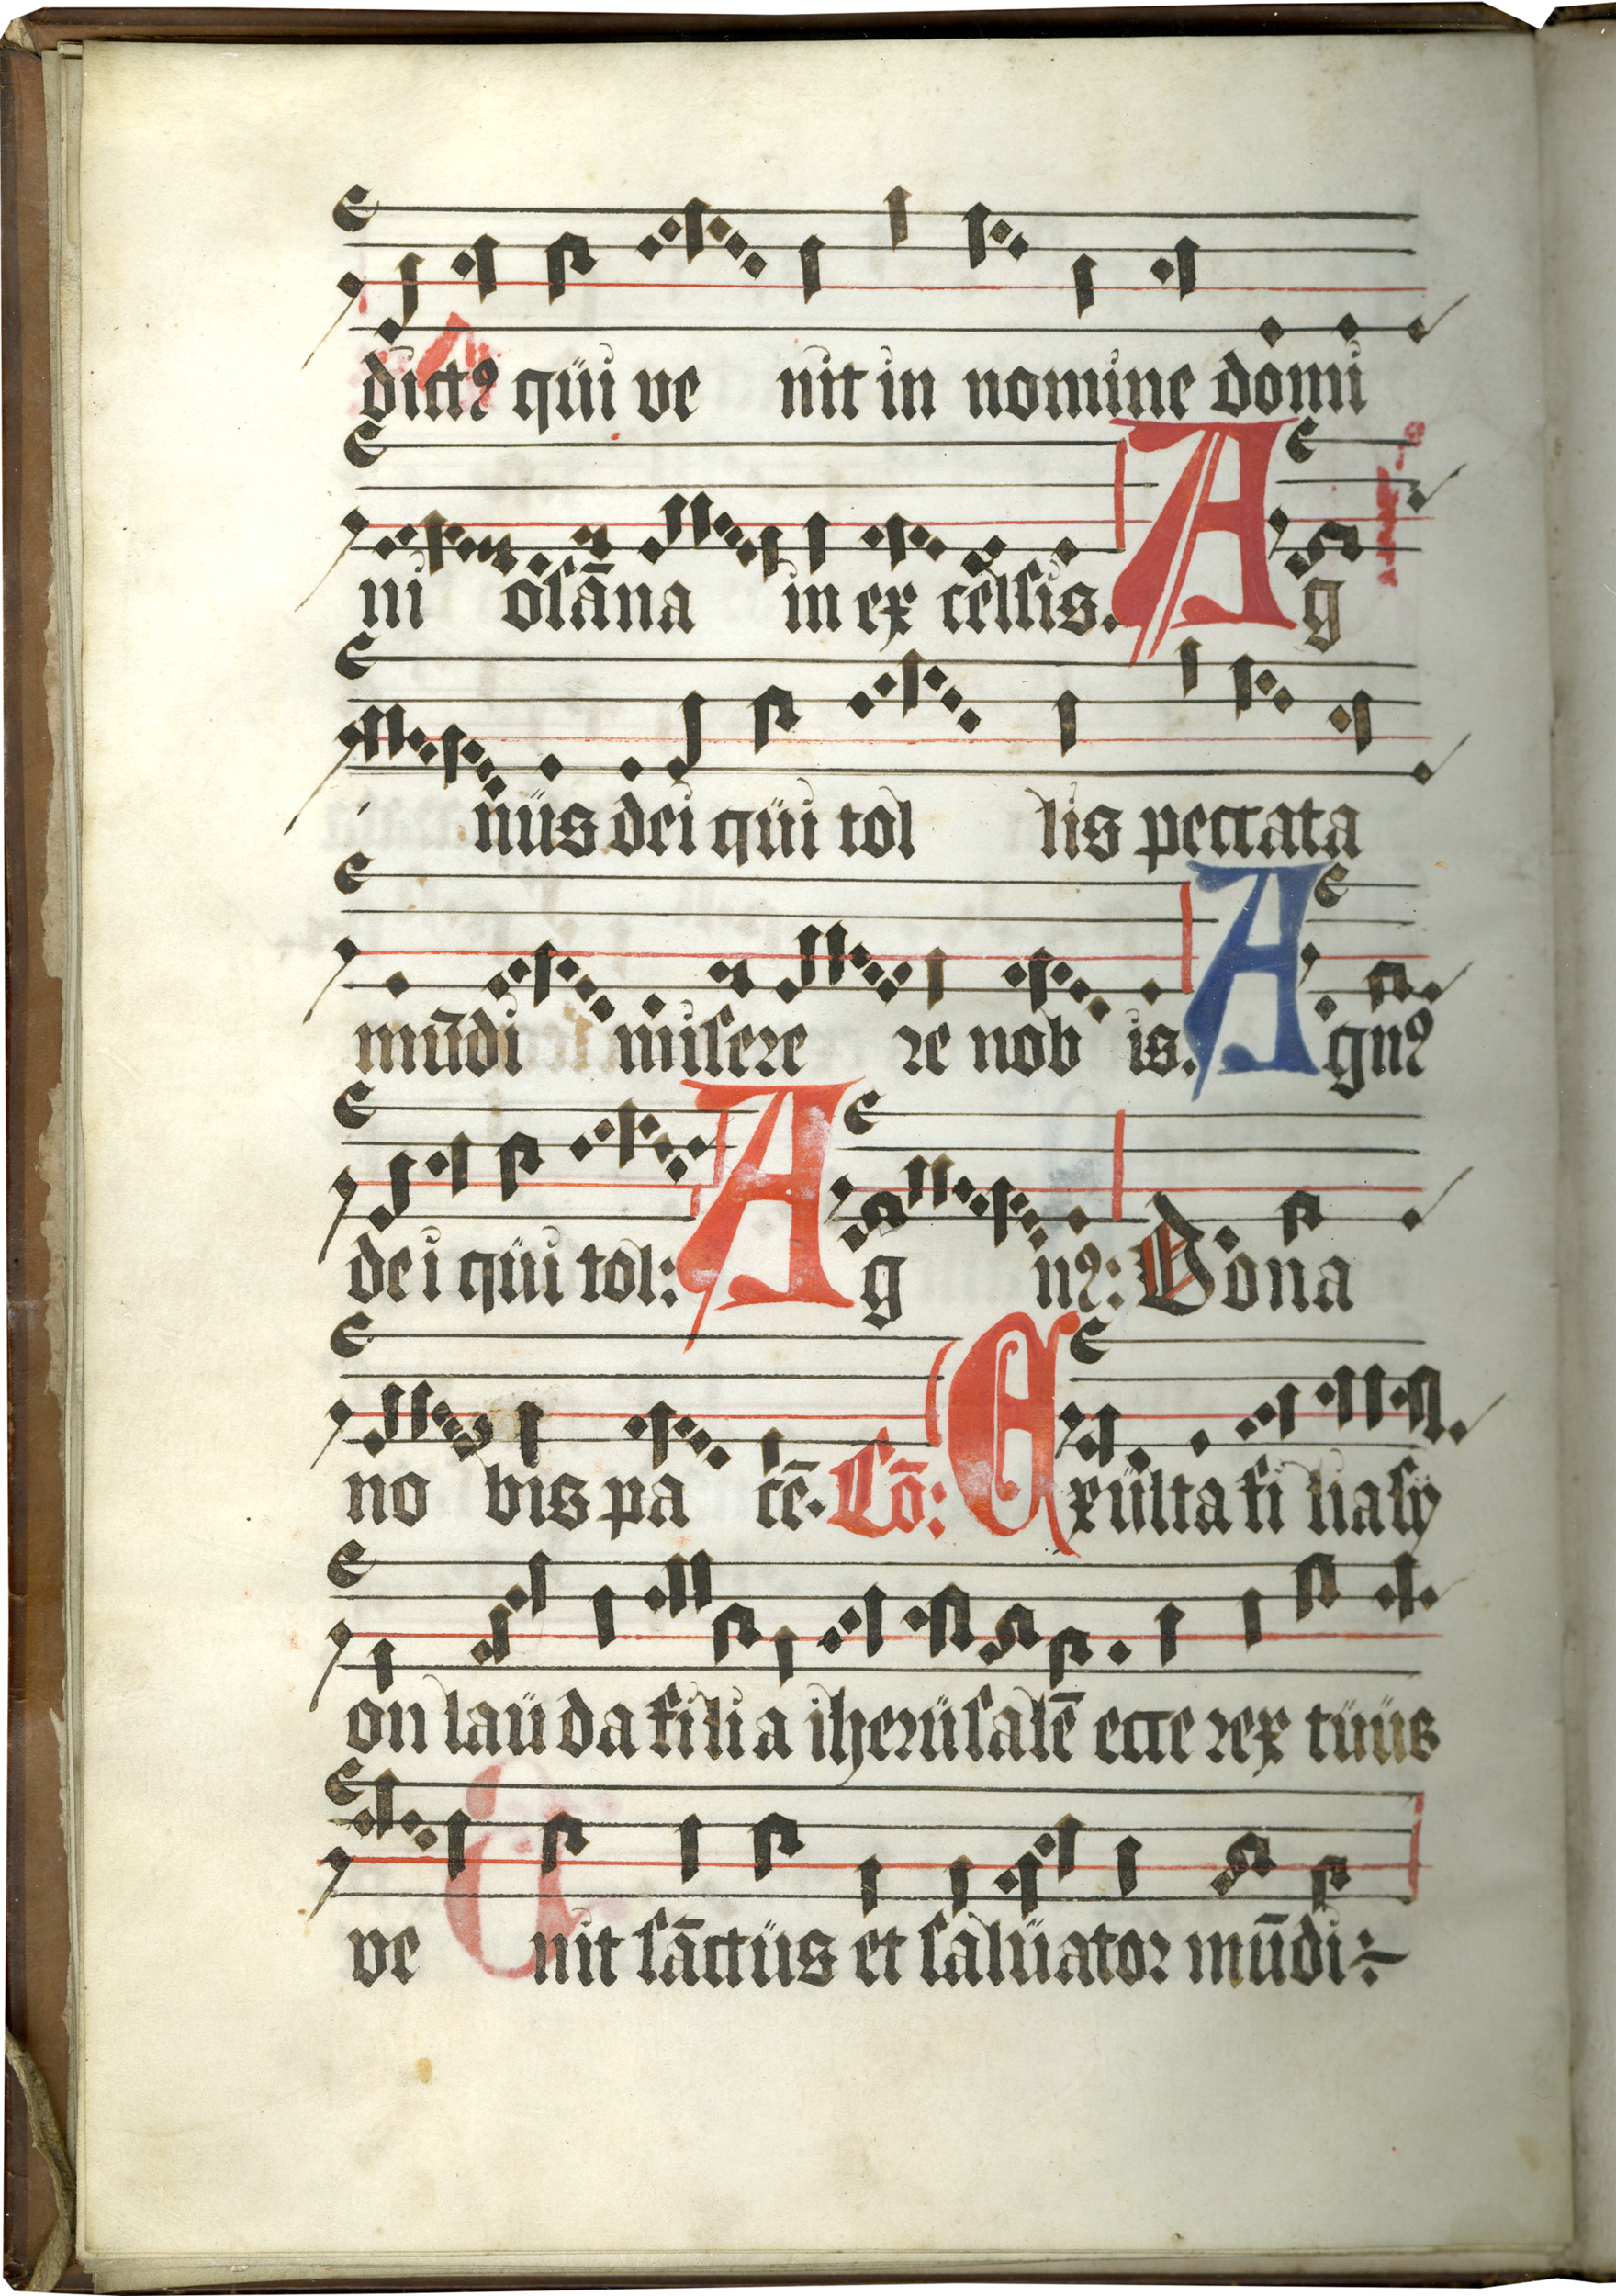 dictꝰ qüi ve nit in nomine domi
ni osāna in ex celsis. Ag
nüs dei qüi tol lis peccata
mūdi misere re nob is. Agnꝰ
dei qüi tol: Ag nꝰ: Dona
no bis pa cē. Cō: Exülta fi lia sÿ
on laüda filia iherüsalē ecce rex tüüs
ve nit sāctüs et salüator mūdi:~